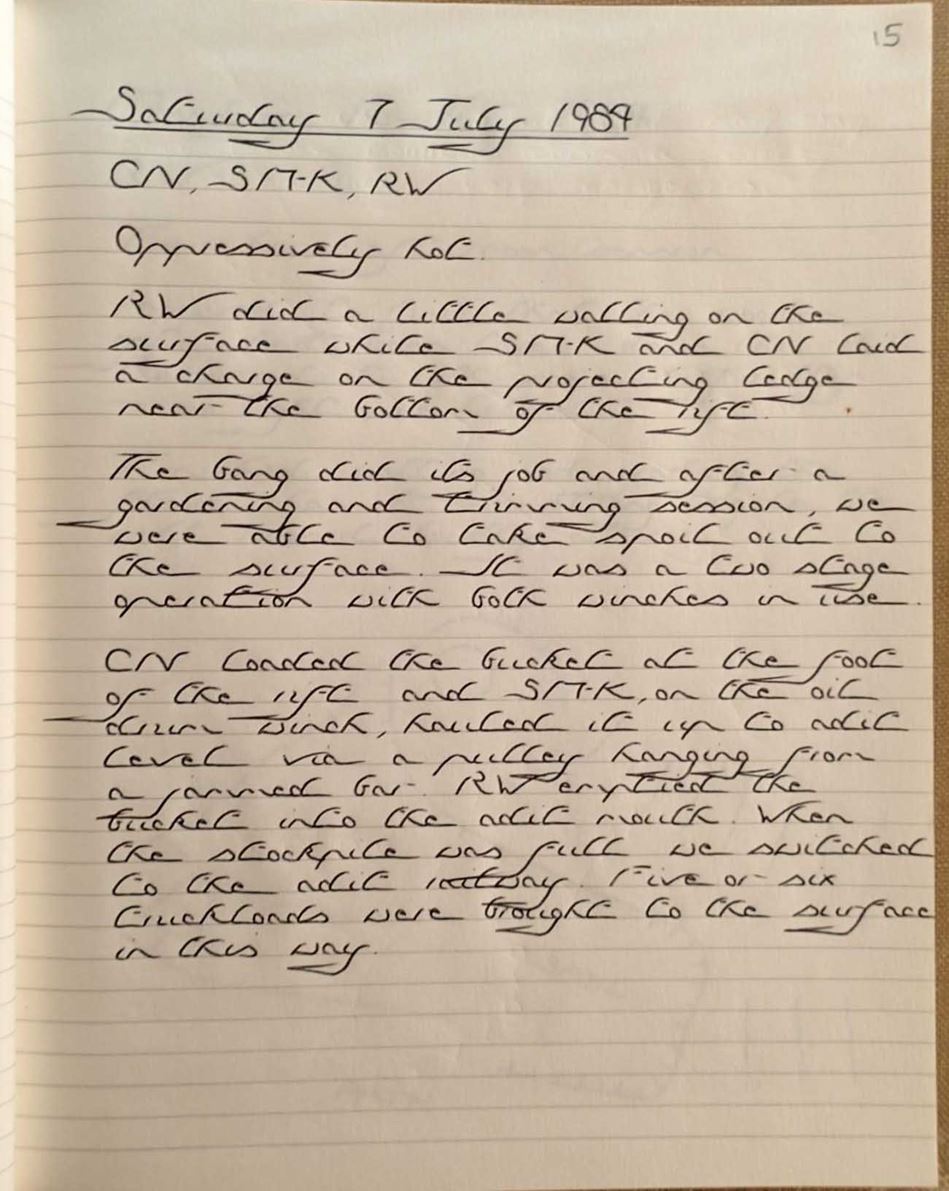 15
Saturday 7 July 1984
CN, SM-K, RW
Oppressively hot.
RW did a little walling on the
surface while SM-K and CN laid
a charge on the projecting ledge
near the bottom of the rift.
The bang did its job and after a
gardening and trimming session, we
were able to take spoil out to
the surface. It was a two stage
operation with both winches in use.
CN loaded the bucket at the foot
of the rift and SM-K, on the oil
drum winch, hauled it up to adit
level via a pulley hanging from
a jammed bar. RW emptied the
bucket into the adit mouth. When
the stockpile was full we switched
to the adit railway. Five or six
truckloads were brought to the surface
in this way.